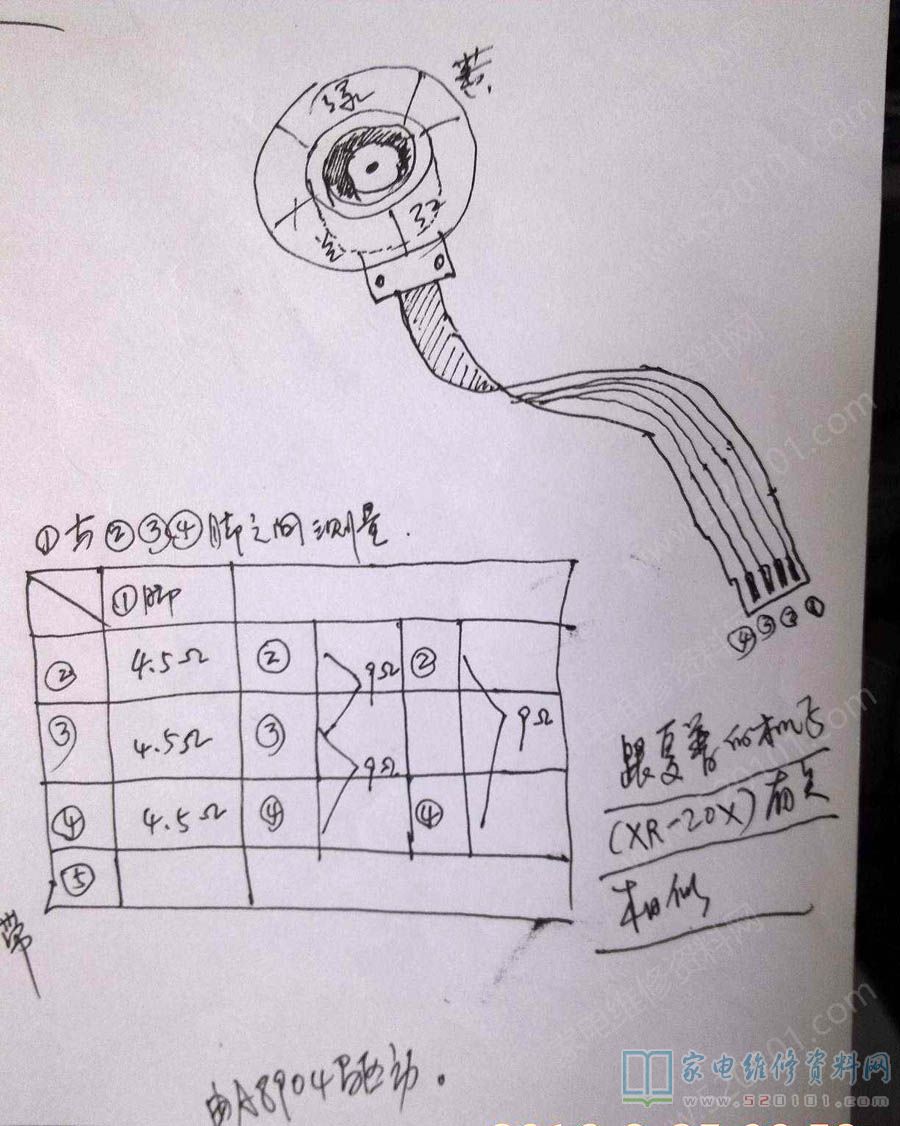 绿
蓝
红
W
①与②③④脚之间测量.
①脚
② 4.5Ω ② 9Ω ②
③ 4.5Ω ③ 9Ω 9Ω
④ 4.5Ω ④ ④
⑤
④ ③ ② ①
跟夏普的机子
(XR-20X)有点
相似
带
由A8904驱动。
家电维修资料网
www.520101.com